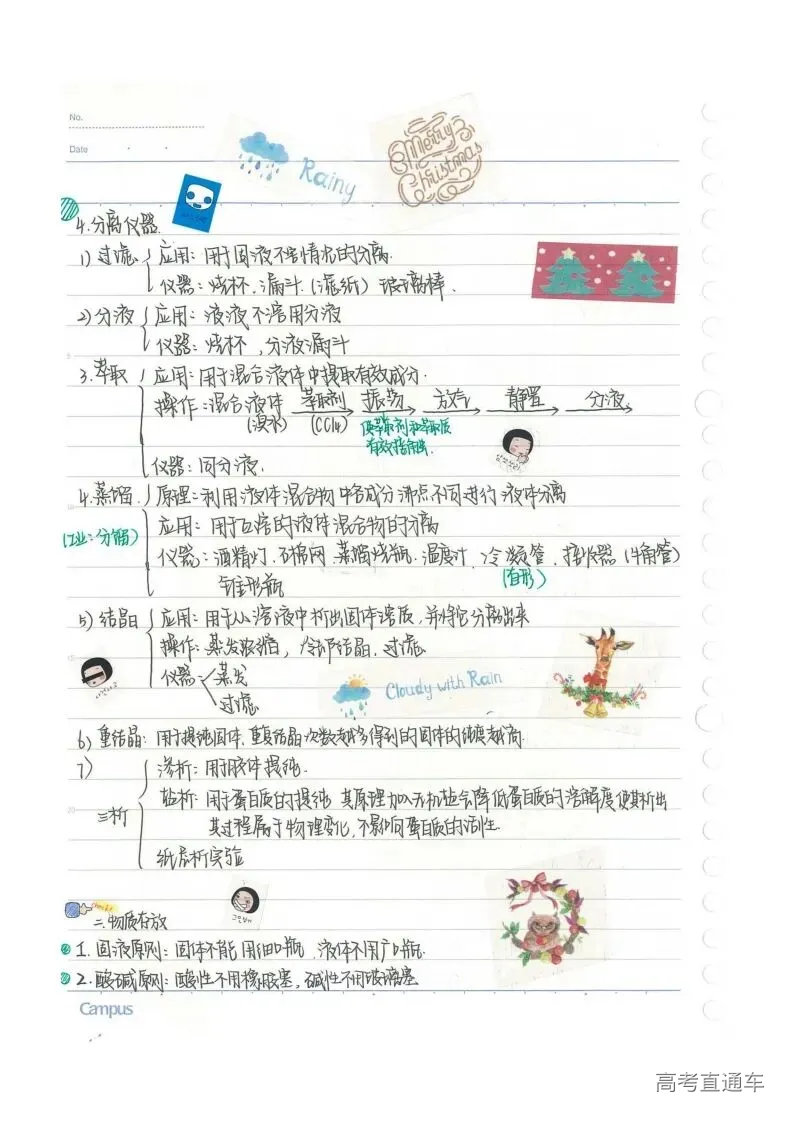 No.
Date
Rainy
Merry Christmas
4.分离仪器
1) 过滤 应用：用于固液不溶情况的分离.
仪器：烧杯.漏斗.(滤纸) 玻璃棒.
2) 分液 应用：液液不溶用分液
仪器：烧杯，分液漏斗
3.萃取 应用：用于混合液体中提取有效成分.
操作：混合液体 萃取剂 振荡 放气 静置 分液
(溴水) (CCl4) 使萃取剂和萃取质
有效接触.
仪器：同分液.
4.蒸馏 原理：利用液体混合物中各成分沸点不同进行液体分离
(工业：分馏) 应用：用于互溶的液体混合物的分离
仪器：酒精灯.石棉网.蒸馏烧瓶.温度计.冷凝管.接收器(牛角管)
(直形)
锥形瓶
5) 结晶 应用：用于从溶液中析出固体溶质，并将它分离出来
操作：蒸发浓缩，冷却结晶.过滤
仪器 蒸发
过滤
Cloudy with Rain
6) 重结晶：用于提纯固体.重复结晶次数越多得到的固体的纯度越高
7) 渗析：用于胶体提纯.
三析 盐析：用于蛋白质的提纯 其原理加入无机盐会降低蛋白质的溶解度使其析出
其过程属于物理变化,不影响蛋白质的活性.
纸层析实验
二.物质存放
1.固液原则：固体不能用细口瓶 液体不用广口瓶.
2.酸碱原则：酸性不用橡胶塞，碱性不用玻璃塞
Campus
高考直通车